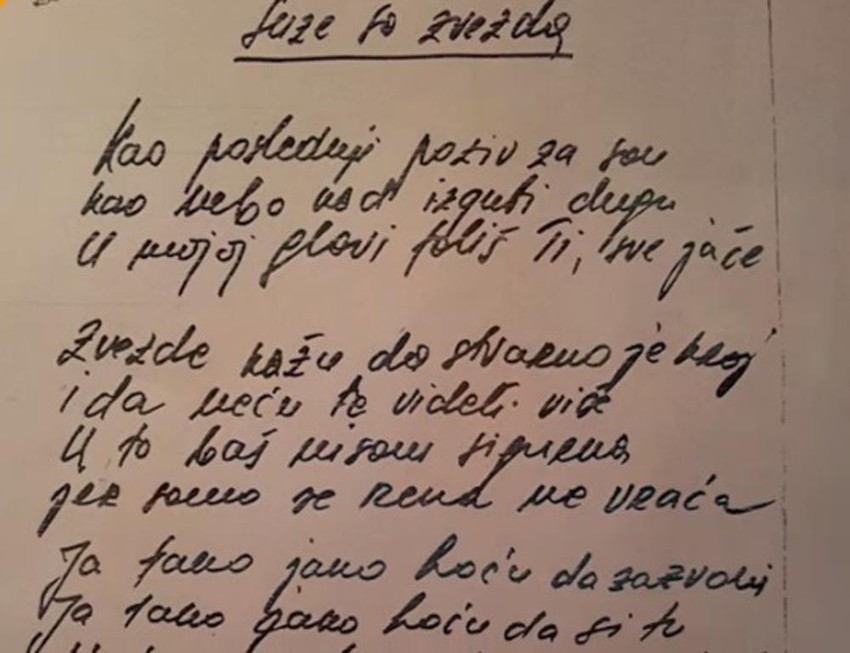 Suze sa zvezda
Kao poslednji poziv za san
kao nebo kad izgubi dugu
U mojoj glavi fališ Ti, sve jače
Zvezde kažu da stvarno je kraj
i da neću te videti više
U to baš nisam sigurna
jer samo se reka ne vraća
Ja tako jako hoću da zazvoni
Ja tako jako hoću da si tu